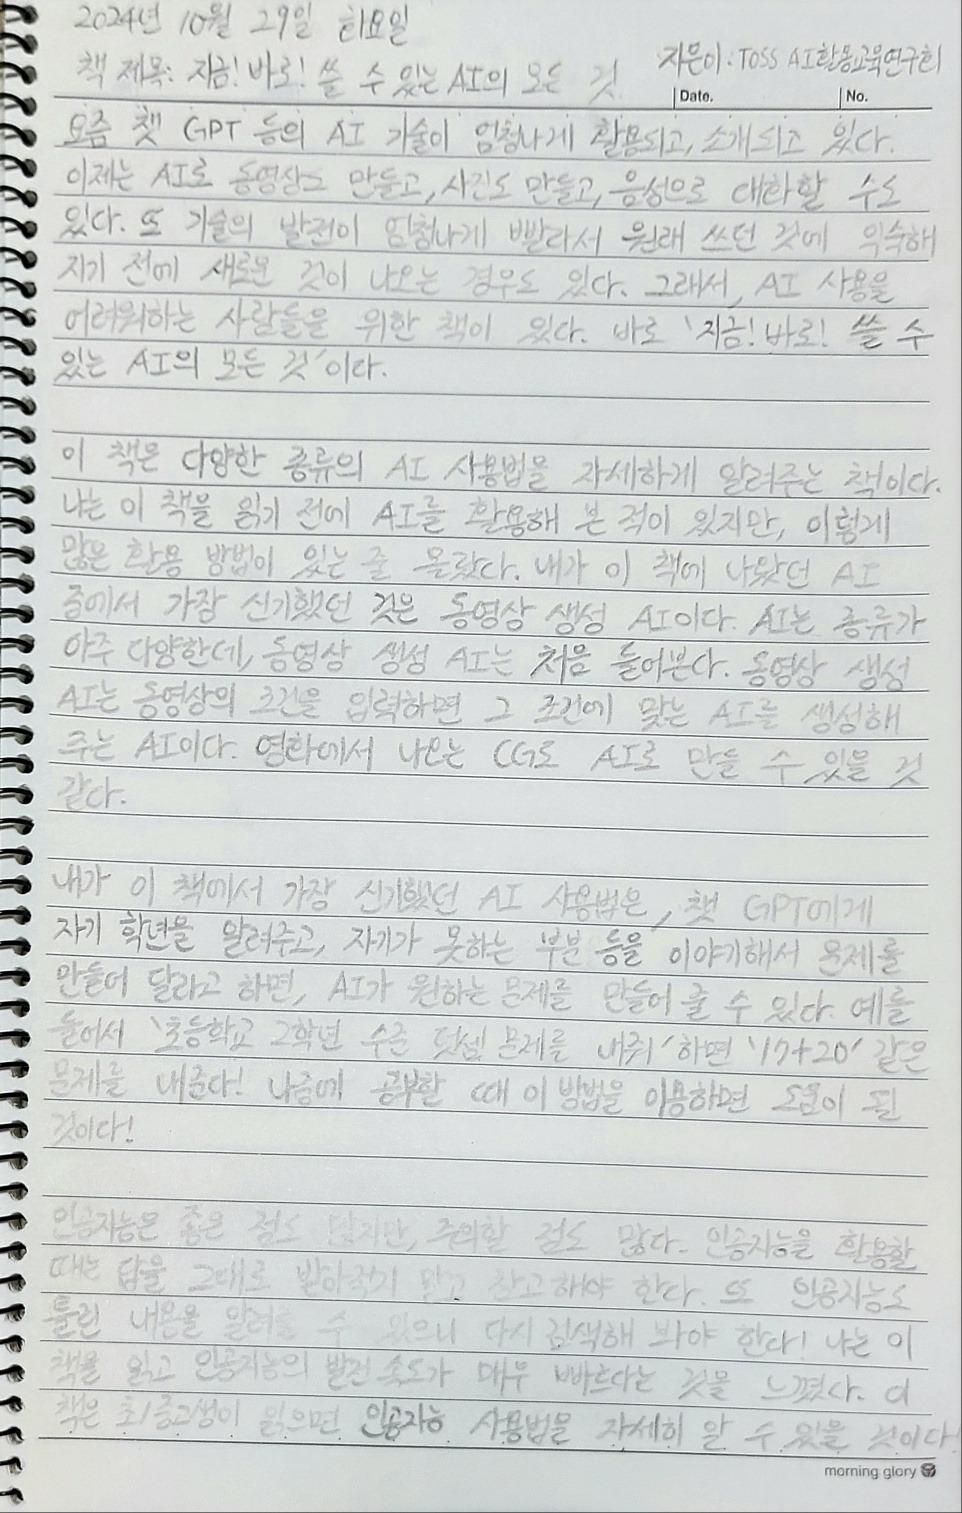 2024년 10월 29일 화요일
책 제목: 지금! 바로! 쓸 수 있는 AI의 모든 것
지은이: TOSS AI활용교육연구회
Date.
No.
요즘 챗 GPT 등의 AI 기술이 엄청나게 활용되고, 소개되고 있다.
이제는 AI로 동영상도 만들고, 사진도 만들고, 음성으로 대화할 수도
있다. 또 기술의 발전이 엄청나게 빨라서 원래 쓰던 것에 익숙해
지기 전에 새로운 것이 나오는 경우도 있다. 그래서, AI 사용을
어려워하는 사람들을 위한 책이 있다. 바로 '지금! 바로! 쓸 수
있는 AI의 모든 것'이다.
이 책은 다양한 종류의 AI 사용법을 자세하게 알려주는 책이다.
나는 이 책을 읽기 전에 AI를 활용해 본 적이 있지만, 이렇게
많은 활용 방법이 있는 줄 몰랐다. 내가 이 책에 나왔던 AI
중에서 가장 신기했던 것은 동영상 생성 AI이다. AI는 종류가
아주 다양한데, 동영상 생성 AI는 처음 들어본다. 동영상 생성
AI는 동영상의 조건을 입력하면 그 조건에 맞는 AI를 생성해
주는 AI이다. 영화에서 나오는 CG도 AI로 만들 수 있을 것
같다.
내가 이 책에서 가장 신기했던 AI 사용법은, 챗 GPT에게
자기 학년을 알려주고, 자기가 못하는 부분 등을 이야기해서 문제를
만들어 달라고 하면, AI가 원하는 문제를 만들어 줄 수 있다. 예를
들어서 '초등학교 2학년 수준 덧셈 문제를 내줘' 하면 '17+20' 같은
문제를 내준다! 나중에 공부할 때 이 방법을 이용하면 도움이 될
것이다!
인공지능은 좋은 점도 많지만, 주의할 점도 많다. 인공지능을 활용할
때는 답을 그대로 받아적기 말고 참고해야 한다. 또 인공지능도
틀린 내용을 알려줄 수 있으니 다시 검색해 봐야 한다! 나는 이
책을 읽고 인공지능의 발전 속도가 매우 빠르다는 것을 느꼈다. 이
책은 초/중고생이 읽으면 인공지능 사용법을 자세히 알 수 있을 것이다!
morning glory